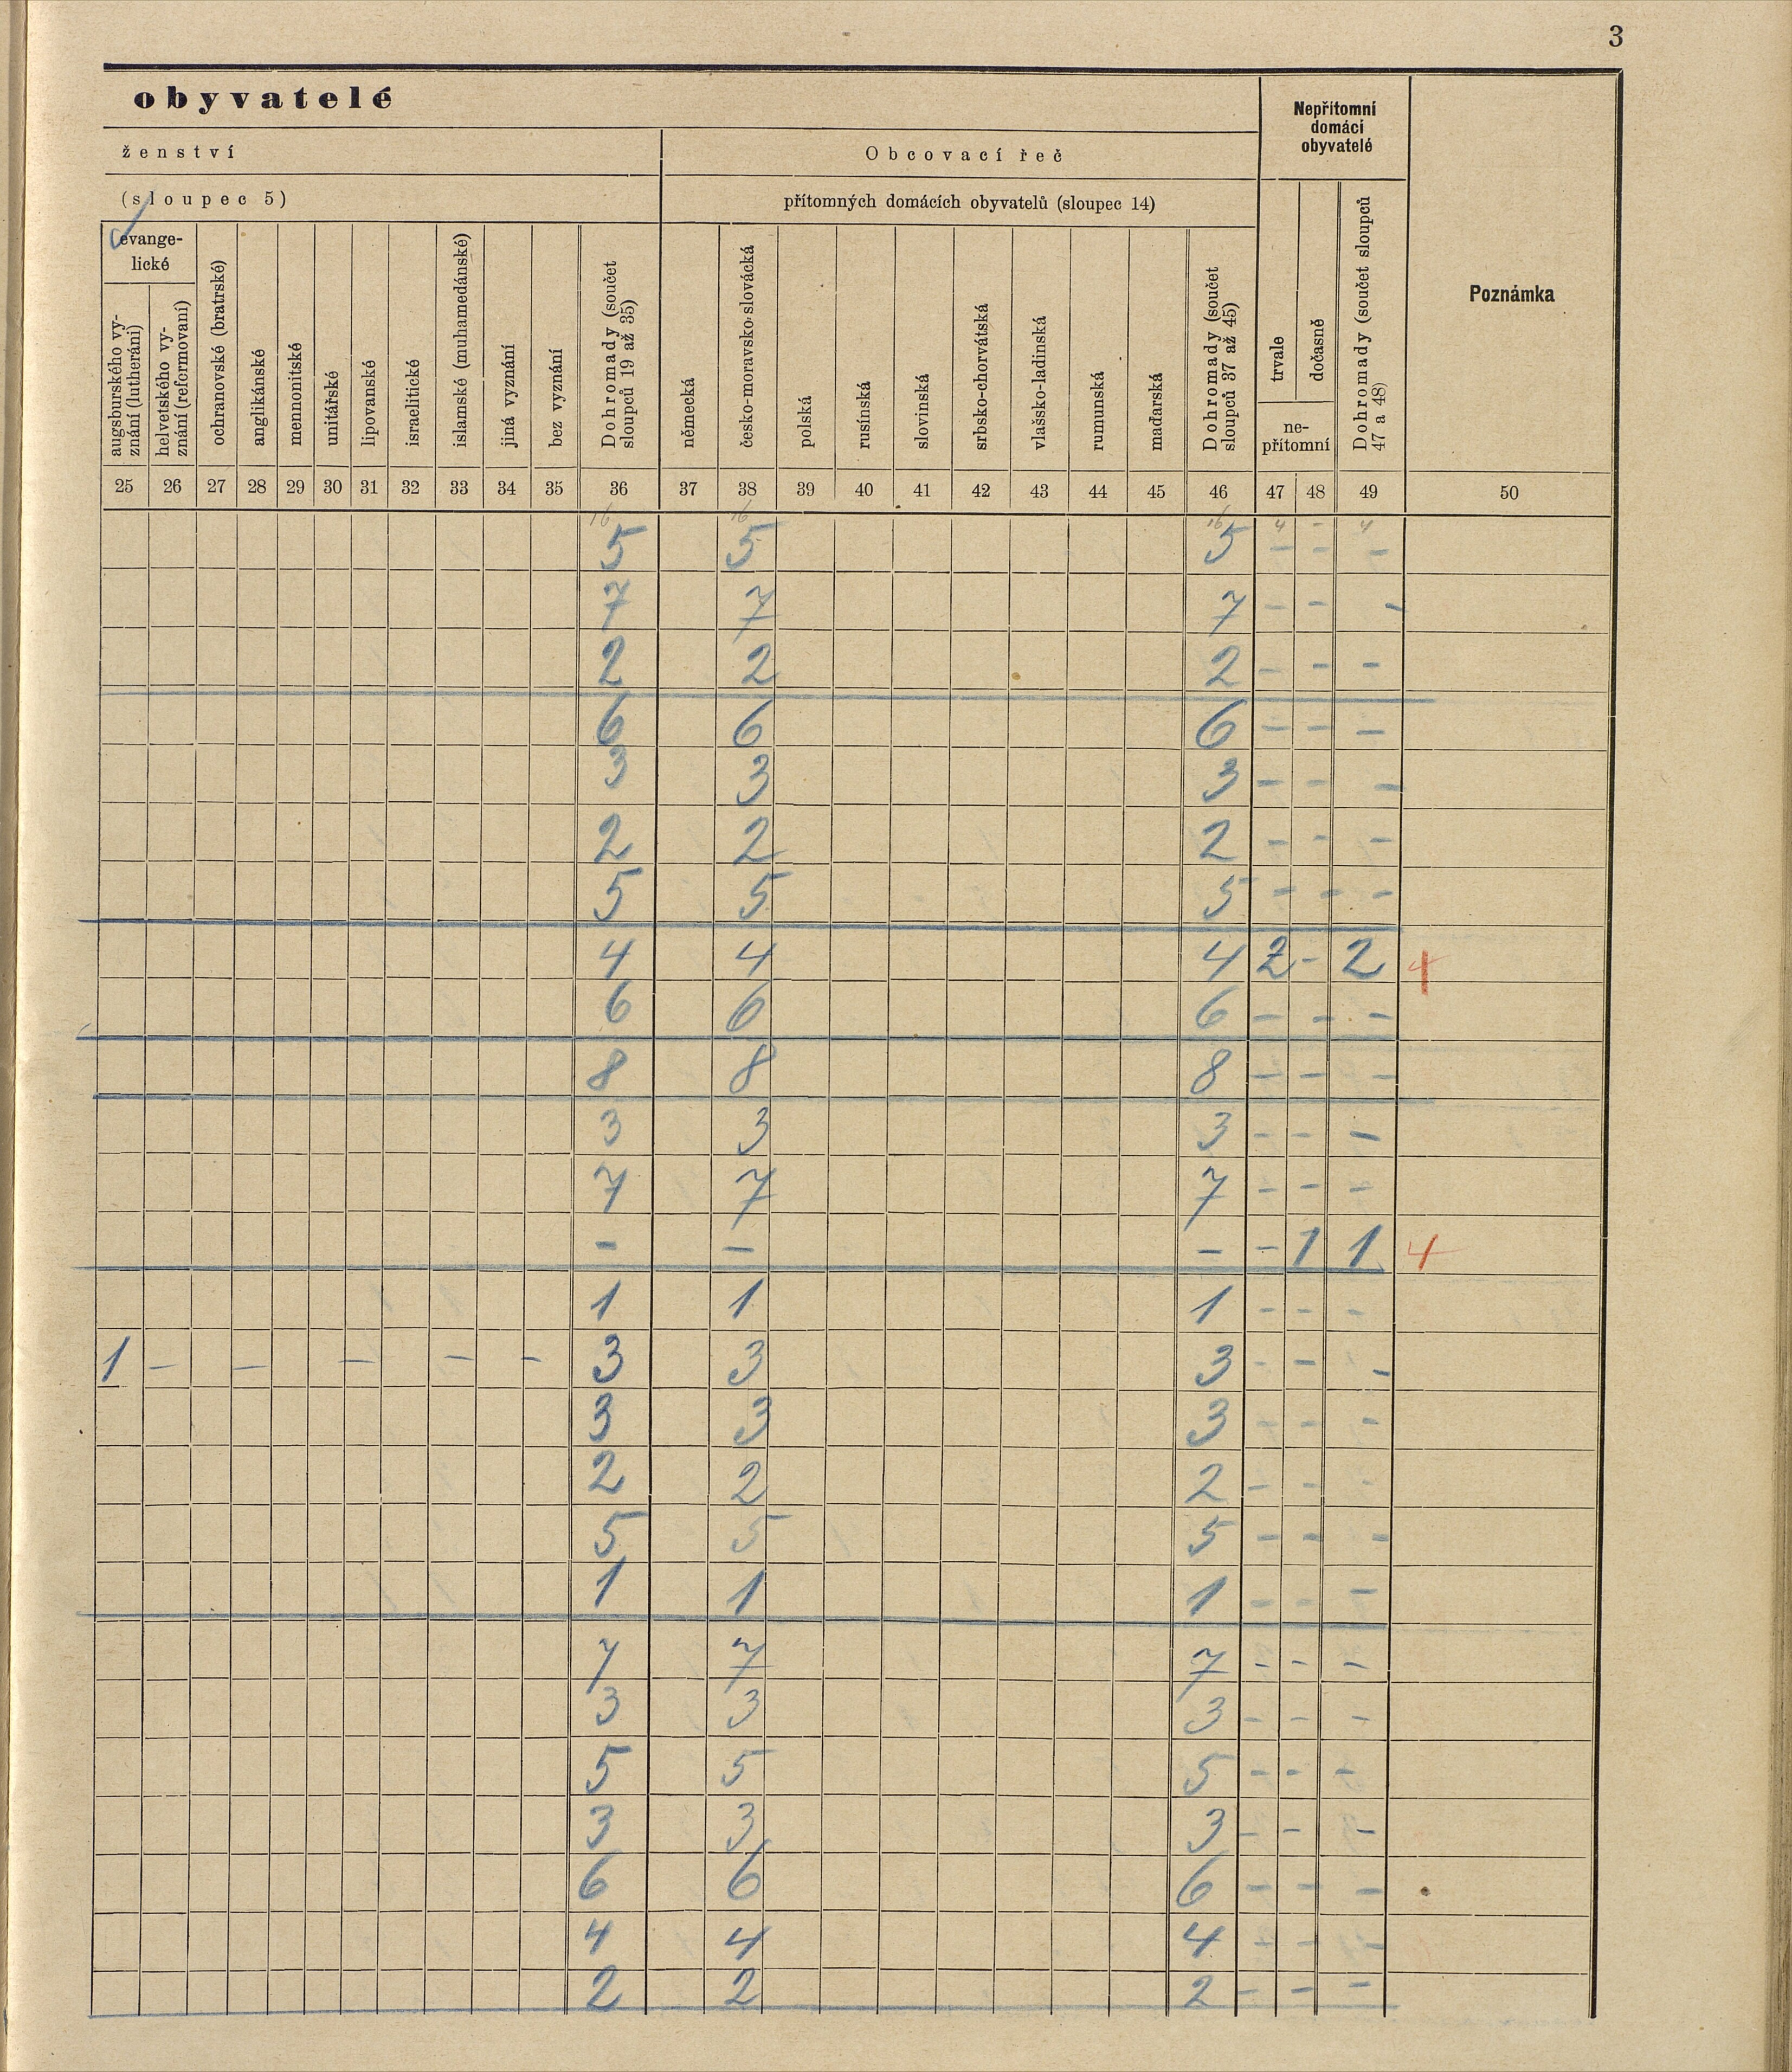 3
obyvatelé
Nepřítomní
domácí
obyvatelé
Poznámka
ženství
Obcovací řeč
(sloupec 5)
přítomných domácích obyvatelů (sloupec 14)
evange-
lické
augsburského vy-
znání (lutheráni)
helvetského vy-
znání (reformovaní)
ochranovské (bratrské)
anglikánské
mennonitské
unitářské
lipovanské
israelitické
islamské (muhamedánské)
jiná vyznání
bez vyznání
Dohromady (součet
sloupců 19 až 35)
německá
česko-moravsko-slovácká
polská
rusínská
slovinská
srbsko-chorvátská
vlašsko-ladinská
rumunská
maďarská
Dohromady (součet
sloupců 37 až 45)
trvale
dočasně
ne-
přítomní
Dohromady (součet sloupců
47 a 48)
25 26 27 28 29 30 31 32 33 34 35 36 37 38 39 40 41 42 43 44 45 46 47 48 49 50
16 16 16 4 - 4
5 5 5 - - -
7 7 7 - - -
2 2 2 - - -
6 6 6 - - -
3 3 3 - - -
2 2 2 - - -
5 5 5 - - -
4 4 4 2 - 2
6 6 6 - - -
8 8 8 - - -
3 3 3 - - -
7 7 7 - - -
- - - - 1 1 4
1 1 1 - - -
1 - - - - - 3 3 3 - - -
3 3 3 - - -
2 2 2 - - -
5 5 5 - - -
1 1 1 - - -
7 7 7 - - -
3 3 3 - - -
5 5 5 - - -
3 3 3 - - -
6 6 6 - - -
4 4 4 - - -
2 2 2 - - -